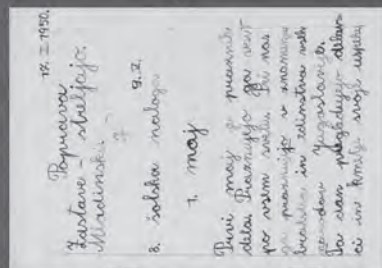 17. I. 1950.
Poprava
Zastave - streljajo.
Mladinska
8. šolska naloga 9. V.
1. maj
Prvi maj je praznik
dela. Praznujejo ga
po vsem svetu. Pri nas
ga praznujejo v znamenju
bratstva in edinstva vseh
narodov Jugoslavije.
Ta dan pregledujejo delav
ci in kmetje svoje uspehe